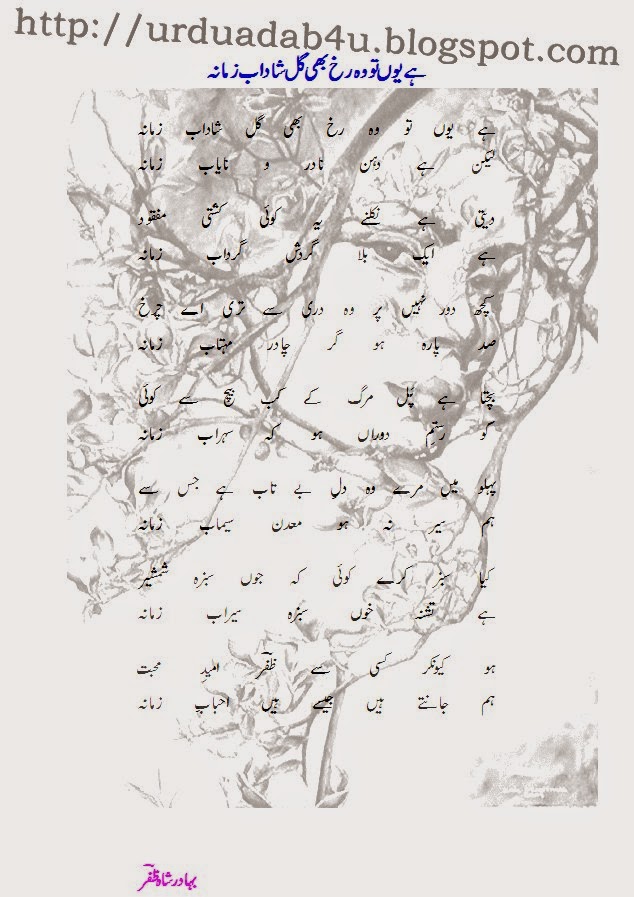 http://urduadab4u.blogspot.com
ہے یوں تو وہ رخ بھی گل شاداب زمانہ
ہے یوں تو وہ رخ بھی گل شاداب زمانہ
لیکن ہے دہن نادر و نایاب زمانہ
دیتی ہے نکلنے یہ کوئی کشتی مفقود
ہے ایک بلا گردش گرداب زمانہ
کچھ دور نہیں پر وہ دری سے تری اے چرخ
صد پارہ ہو گر چادر مہتاب زمانہ
بچتا ہے پُل مرگ کے کب بیچ سے کوئی
گو رستمِ دوراں ہو کہ سہراب زمانہ
پہلو میں مرے وہ دلِ بے تاب ہے جس سے
ہم سیر نہ ہو معدن سیماب زمانہ
کیا سبز کرے کوئی کہ جوں سبزہ شمشیر
ہے تشنہ خوں سبزہ سیراب زمانہ
ہو کیونکر کسی سے ظفرؔ امیدِ محبت
ہم جانتے ہیں جیسے ہیں احبابِ زمانہ
بہادر شاہ ظفرؔ